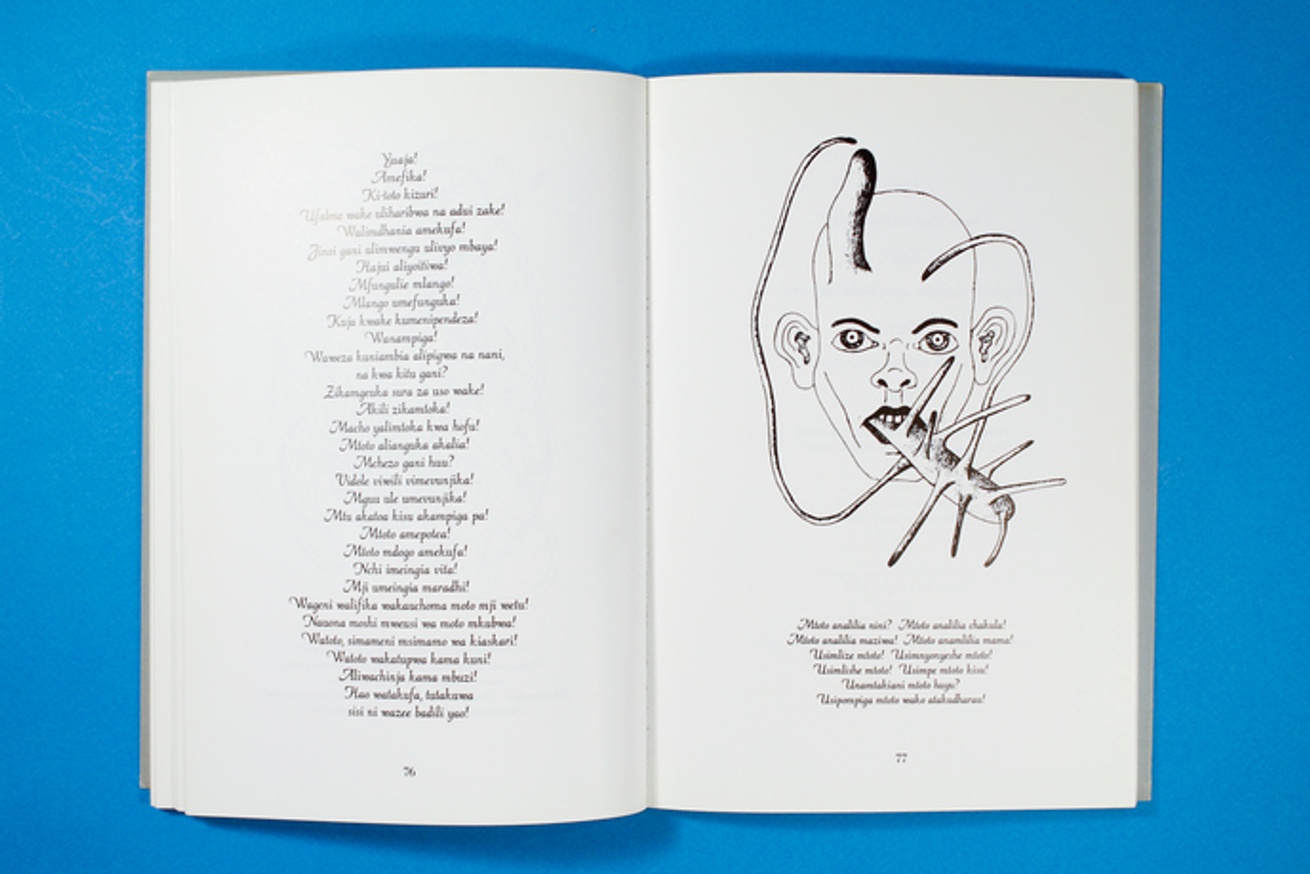 Yuaja!
Amefika!
Ki-toto kizuri!
Ufalme wake uliharibwa na adui zake!
Walimdhania amekufa!
Jinsi gani ulimwengu ulivyo mbaya!
Hajui aliyoitiwa!
Mfungulie mlango!
Mlango umefunguka!
Kuja kwake kumenipendeza!
Wanampiga!
Waweza kuniambia alipigwa na nani,
na kwa kitu gani?
Zikamgeuka sura za uso wake!
Akili zikamtoka!
Macho yalimtoka kwa hofu!
Mtoto alianguka akalia!
Mchezo gani huu?
Vidole viwili vimevunjika!
Mguu ule umevunjika!
Mtu akatoa kisu akampiga pa!
Mtoto amepotea!
Mtoto mdogo amekufa!
Nchi imeingia vita!
Mji umeingia maradhi!
Wageni walifika wakauchoma moto mji wetu!
Nauona moshi mweusi wa moto mkubwa!
Watoto, simameni msimamo wa kiaskari!
Watoto wakatupwa kama kuni!
Aliwachinja kama mbuzi!
Hao watakufa, tutakuwa
sisi ni wazee badili yao!
76
Mtoto analilia nini? Mtoto analilia chakula!
Mtoto analilia maziwa! Mtoto anamlilia mama!
Usimlize mtoto! Usimnyonyeshe mtoto!
Usimlishe mtoto! Usimpe mtoto kisu!
Unamtakiani mtoto huyo?
Usipompiga mtoto wako atakudharau!
77